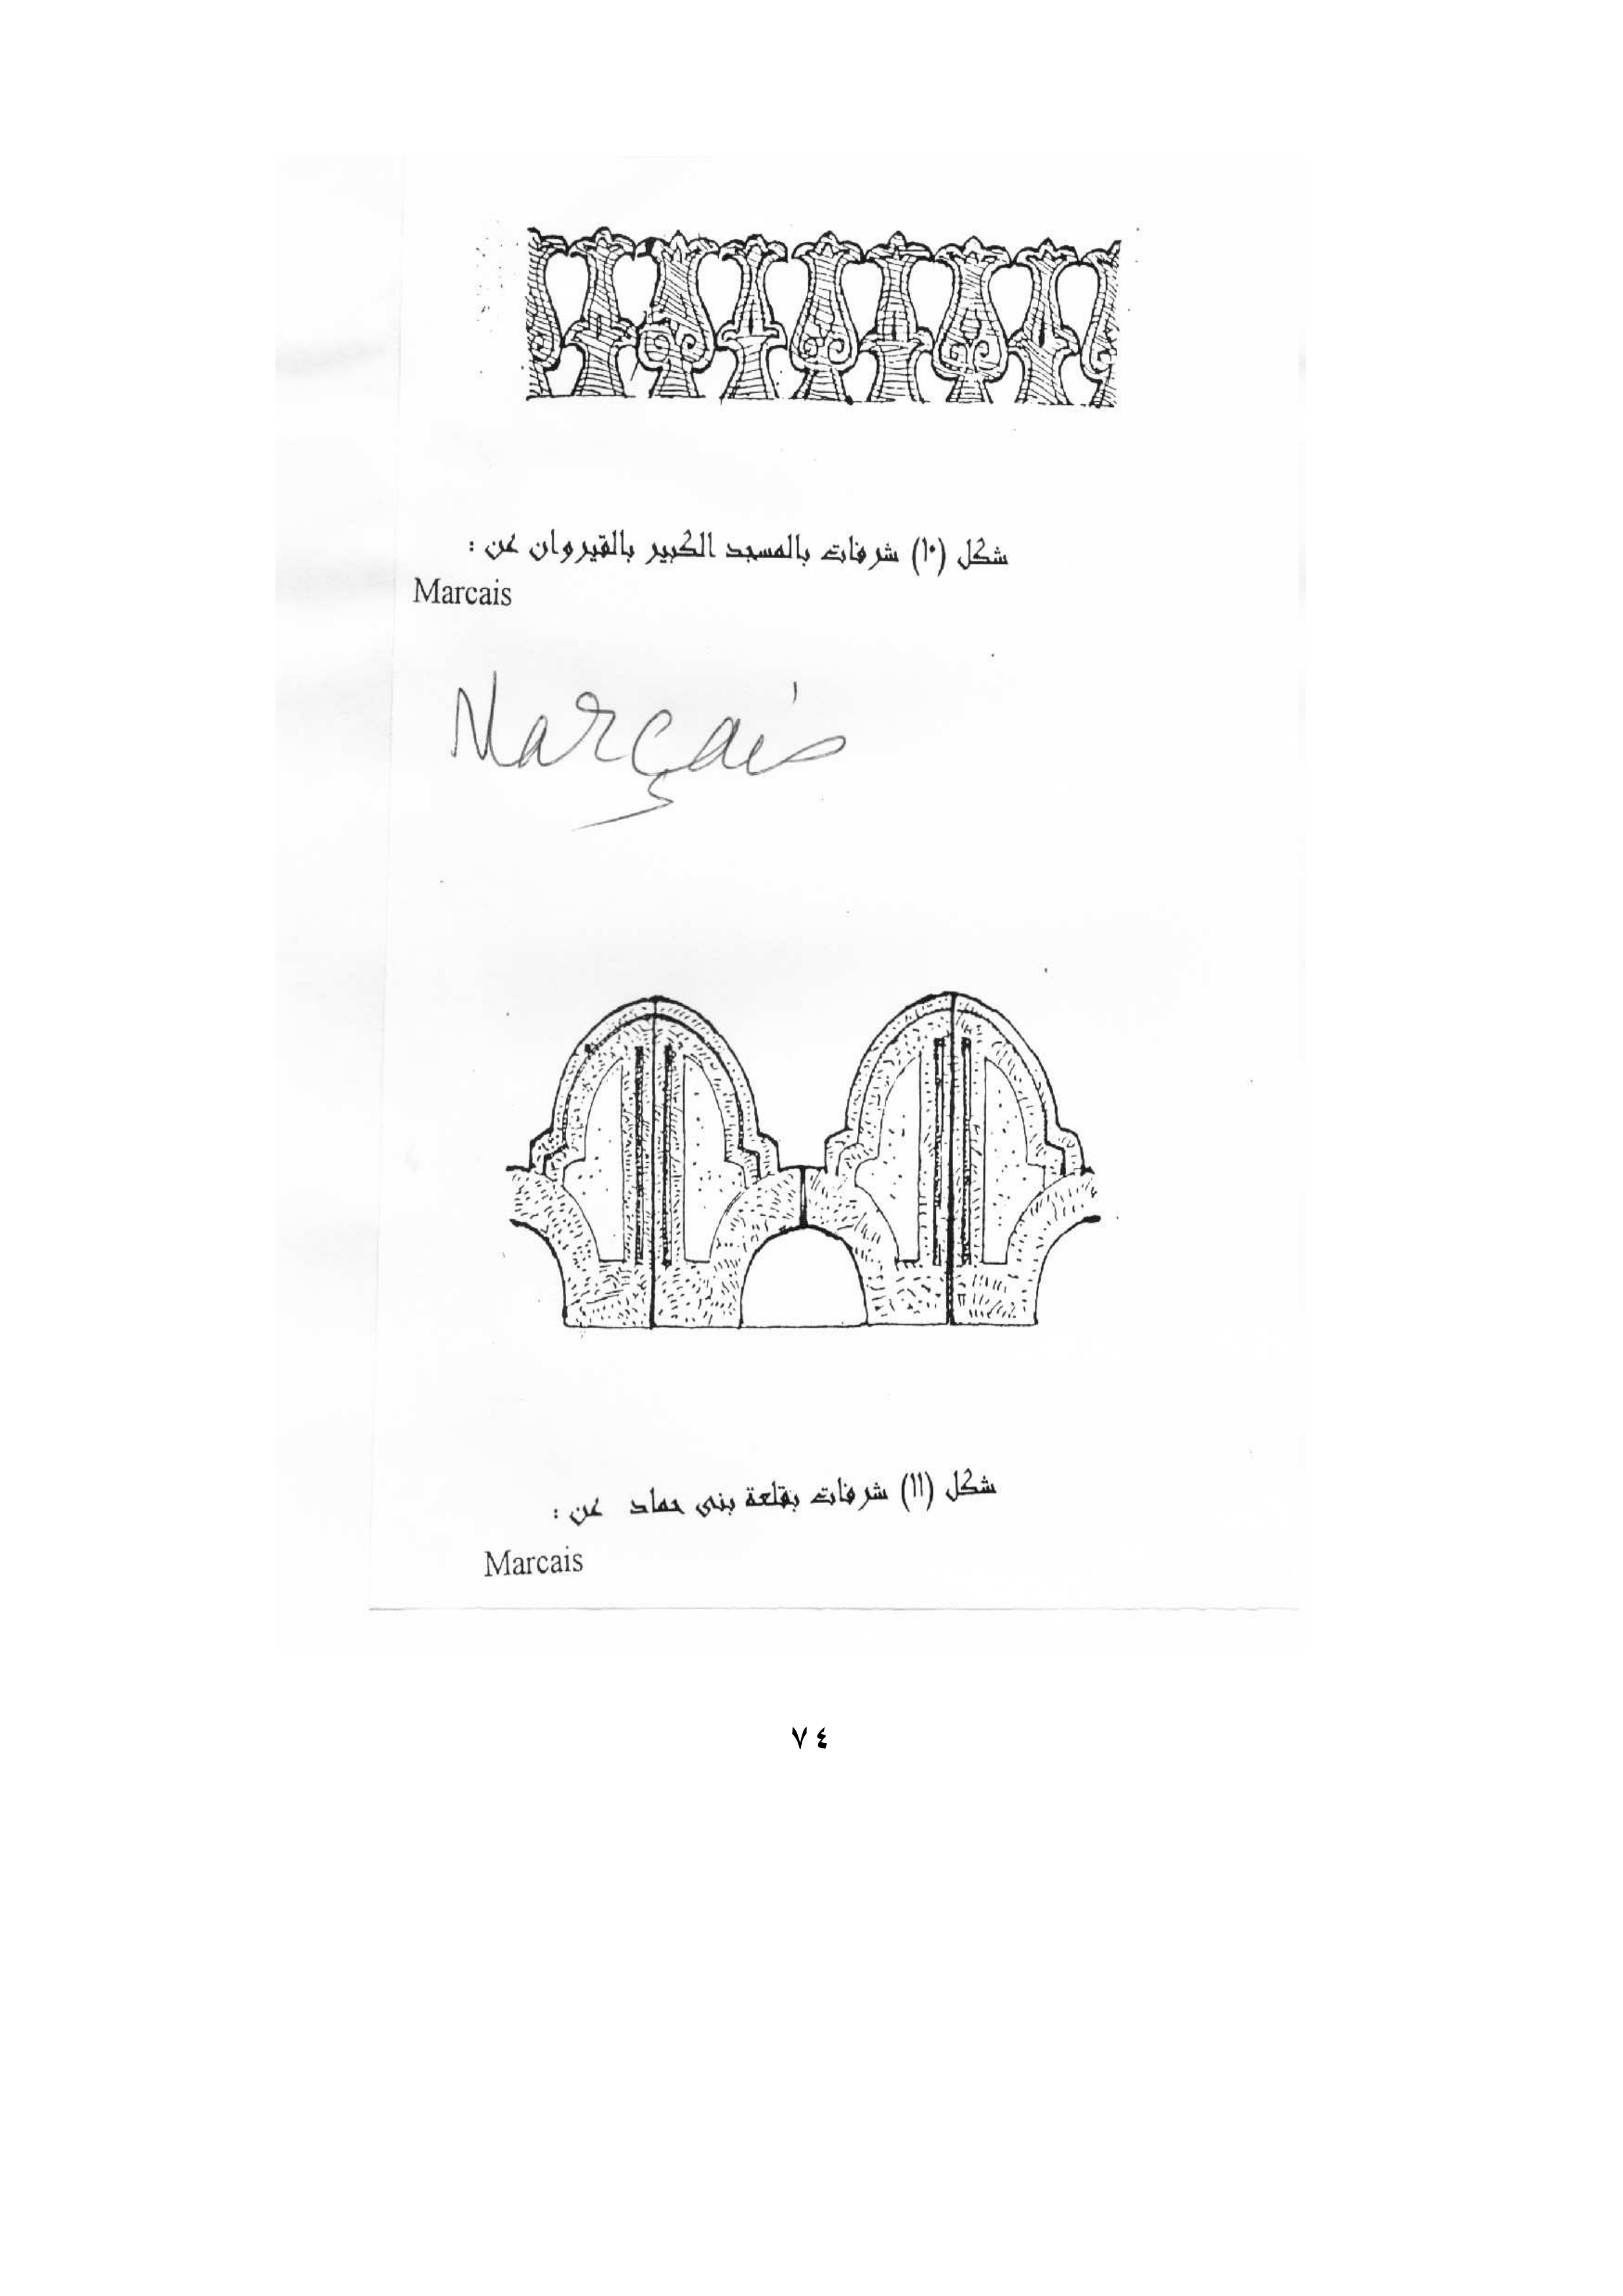 شكل (١٠) شرفات بالمسجد الكبير بالقيروان عن :
Marcais
Marçais
شكل (١١) شرفات بقلعة بنى حماد عن :
Marcais
٧٤